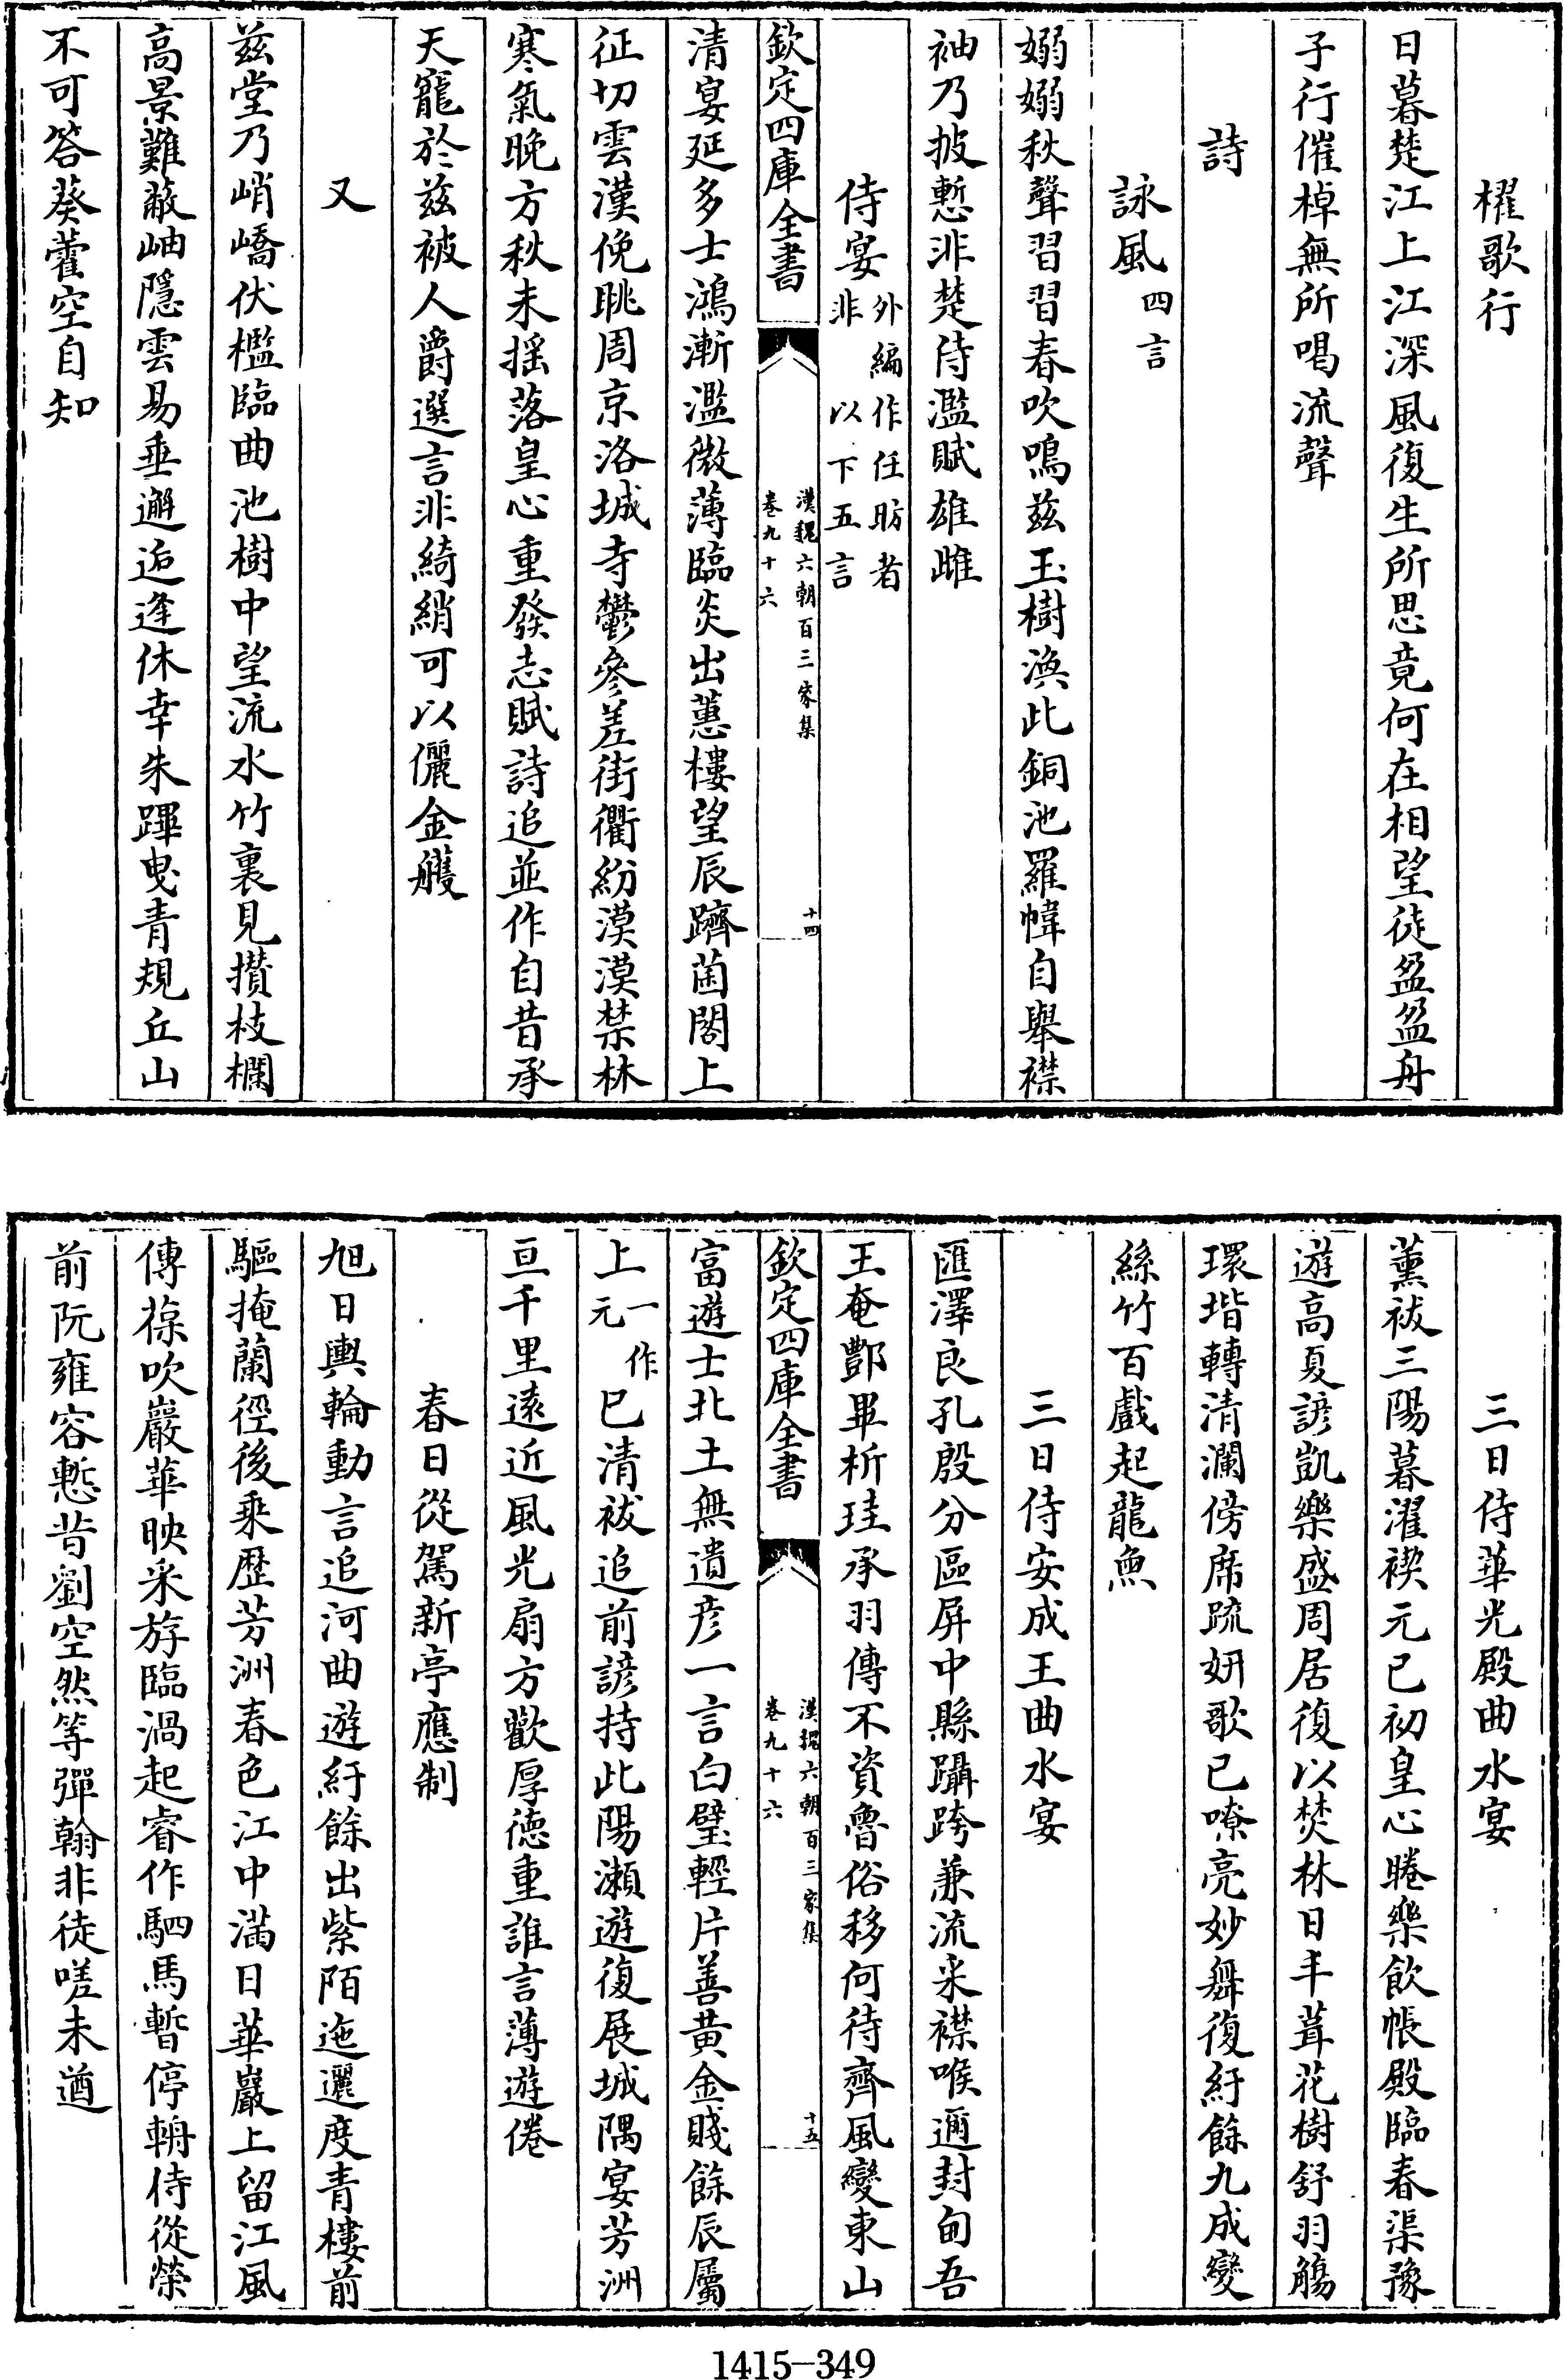 櫂歌行
日暮楚江上江深風復生所思竟何在相望徒盈盈舟
子行催棹無所喝流聲
詩
詠風四言
嫋嫋秋聲習習春吹鳴兹玉樹渙此銅池羅幃自舉襟
袖乃披慙非楚侍濫賦雄雌
侍宴外編作任昉者非以下五言
欽定四庫全書
漢魏六朝百三家集
卷九十六
十四
清宴延多士鴻漸濫微薄臨炎出蕙樓望辰躋菌閣上
征切雲漢俛眺周京洛城寺鬱參差街衢紛漠漠禁林
寒氣晚方秋未揺落皇心重發志賦詩追並作自昔承
天寵於兹被人爵選言非綺綃可以儷金雘
又
兹堂乃峭嶠伏檻臨曲池樹中望流水竹裏見攅枝欄
高景難蔽岫隱雲易垂邂逅逢休幸朱蹕曵青規丘山
不可答葵藿空自知
三日侍華光殿曲水宴
薰祓三陽暮濯禊元已初皇心睠樂飲帳殿臨春渠豫
遊高夏諺凱樂盛周居復以焚林日丰茸花樹舒羽觴
環堦轉清瀾傍席疏妍歌已嘹亮妙舞復紆餘九成變
絲竹百戲起龍魚
三日侍安成王曲水宴
匯澤良孔殷分區屏中縣躡跨兼流采襟喉邇封甸吾
王奄酆畢析珪承羽傳不資魯俗移何待齊風變東山
欽定四庫全書
漢魏六朝百三家集
卷九十六
十五
富遊士北土無遺彦一言白璧輕片善黄金賤餘辰屬
上一作元巳清祓追前諺持此陽瀬遊復展城隅宴芳洲
亘千里遠近風光扇方歡厚徳重誰言薄遊倦
春日從駕新亭應制
旭日輿輪動言追河曲遊紆餘出紫陌迤邐度青樓前
驅掩蘭徑後乗歴芳洲春色江中滿日華巖上留江風
傳葆吹巖華映采斿臨渦起睿作駟馬暫停輈侍從榮
前阮雍容慙昔劉空然等彈翰非徒嗟未遒
1415-349